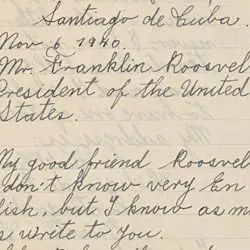 Santiago de Cuba.
Nov 6 1940.
Mr. Franklin Roosvel
President of the United
States.
My good friend Roosvel
don't know very En
lish, but I know as m
s write to you.